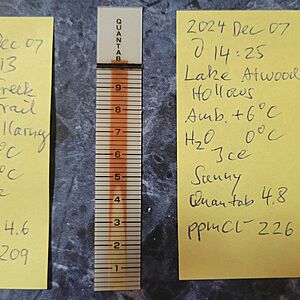 Dec 07
13
Creek
Trail
°C
°C
4.6
209
QUANTAB
9
8
7
6
5
4
3
2
1
2024 Dec 07
@ 14:25
Lake Atwood
Hollows
Amb. +6°C
H2O 0°C
Ice
Sunny
Quantab 4.8
ppm CL- 226